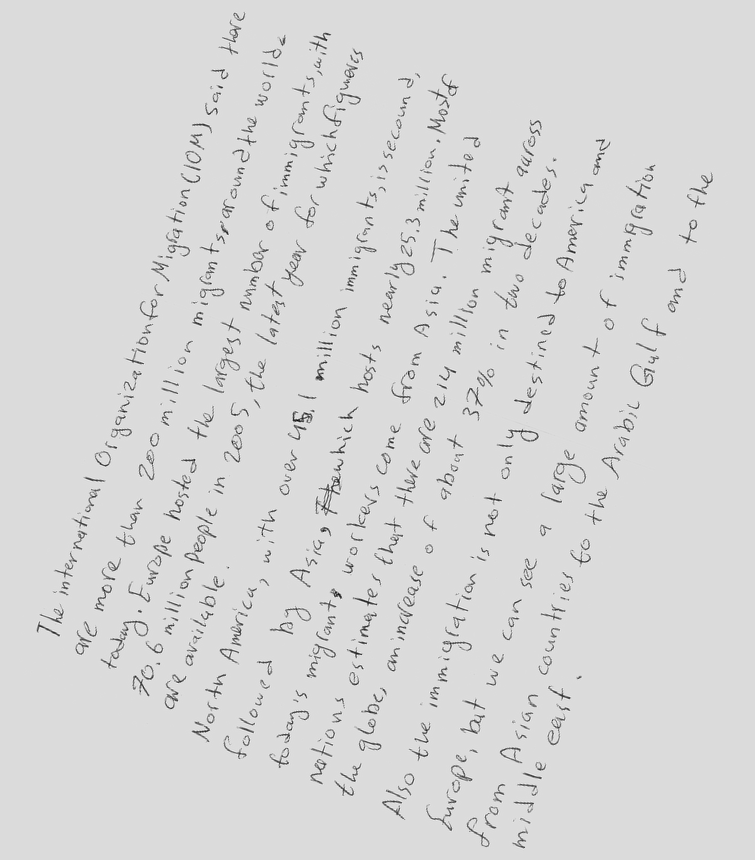 The international Organization for Migration (IOM) said there
are more than 200 million migrants around the world.
today. Europe hosted the largest number of immigrants, with
70.6 million people in 2005, the latest year for which figueres
are available.
North America, with over 45.1 million immigrants, is secound,
followed by Asia, which hosts nearly 25.3 million. Most of
today's migrants workers come from Asia. The united
nations estimates that there are 214 million migrant across
the globe, an increase of about 37% in two decades.
Also the immigration is not only destined to America and
Europe, but we can see a large amount of immigration
from Asian countries to the Arabic Gulf and to the
middle east.